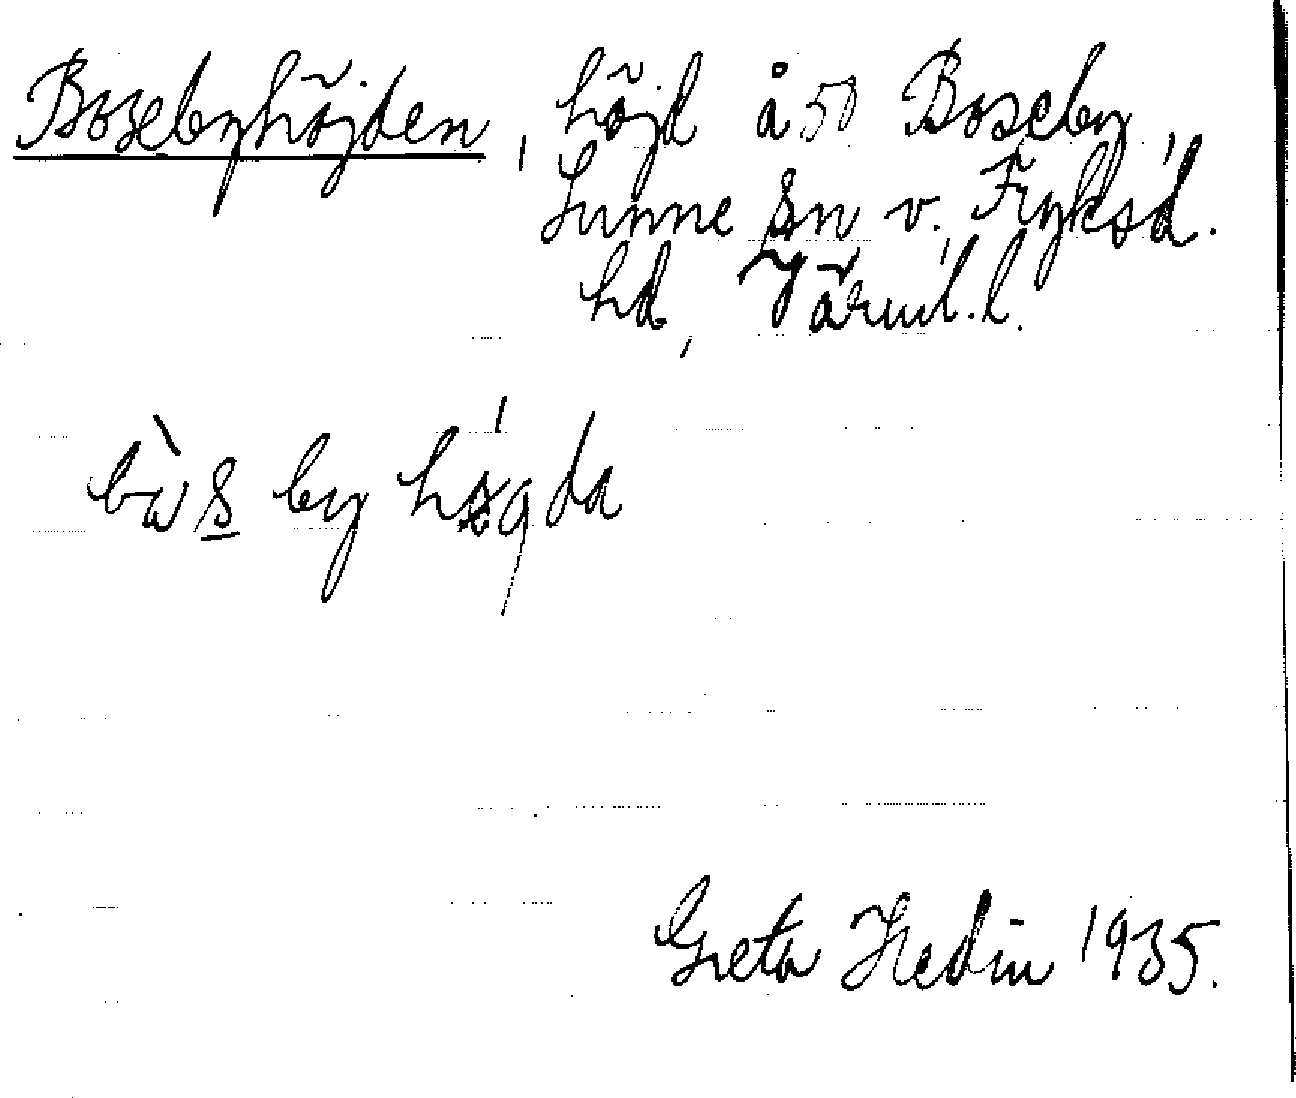 Bosebyhöjden, höjd å 50 Boseby,
Sunne sn v. Fryksd.
hd, Värml. l.
bὼs by høgda
Greta Hedin 1935.